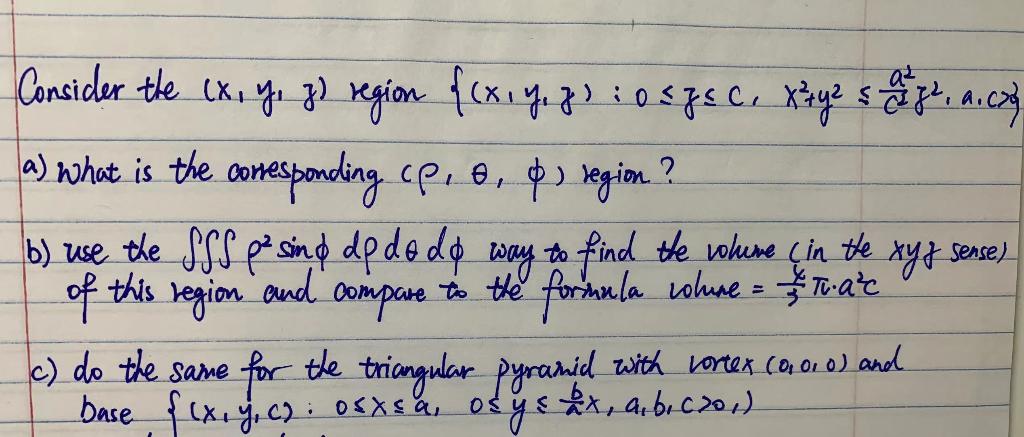 Consider the (x, y, z) region {(x, y, z) : 0 ≤ z ≤ c, x²+y² ≤ a²/c² z², a, c>0}
a) what is the corresponding (ρ, θ, φ) region?
b) use the ∫∫∫ ρ² sinφ dρ dθ dφ way to find the volume (in the xyz sense)
of this region and compare to the formula volume = 4/3 π·a²c
c) do the same for the triangular pyramid with vortex (0,0,0) and
base {(x, y, c) : 0≤x≤a, 0≤y≤ b/a x, a,b,c>0,)